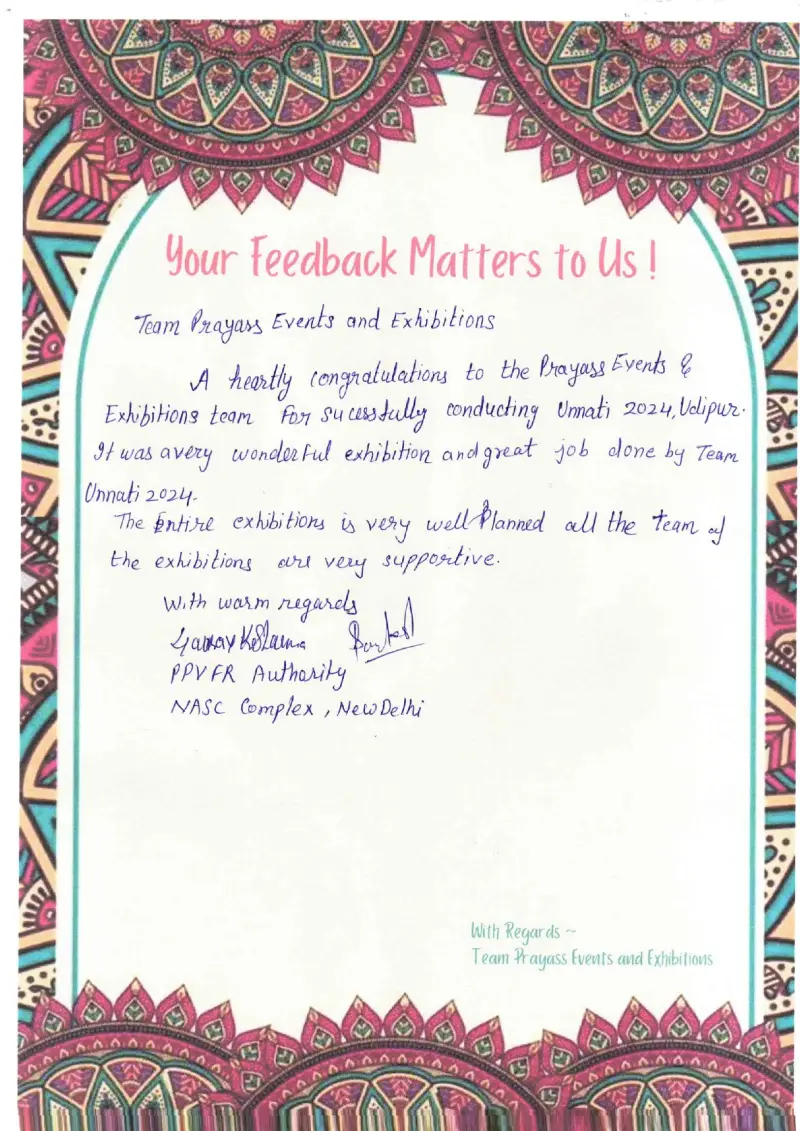 Your Feedback Matters to Us !
Team Prayass Events and Exhibitions
A heartly congratulations to the Prayass Events &
Exhibitions team for sucessfully conducting Unnati 2024, Udipur.
It was a very wonderful exhibition and great job done by Team
Unnati 2024.
The Entire exhibitions is very well Planned all the team of
the exhibitions are very supportive.
With warm regards
PPVFR Authority
NASC Complex, New Delhi
With Regards ~
Team Prayass Events and Exhibitions